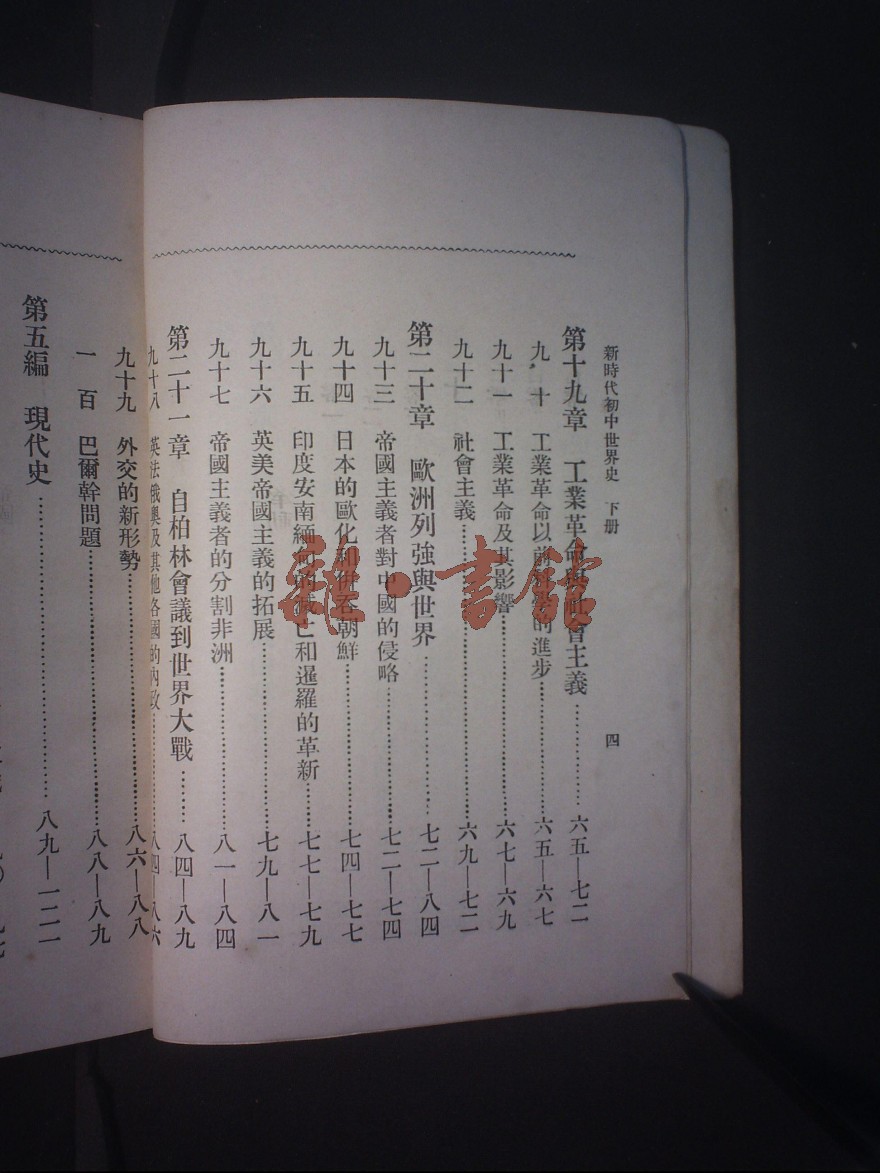 新時代初中世界史　下册
四
第十九章　工業革命與社會主義………………六五—七二
九　十　工業革命以前科學的進步………………六五—六七
九十一　工業革命及其影響………………六七—六九
九十二　社會主義………………六九—七二
第二十章　歐洲列強與世界………………七二—八四
九十三　帝國主義者對中國的侵略………………七二—七四
九十四　日本的歐化和併吞朝鮮………………七四—七七
九十五　印度安南緬甸的滅亡和暹羅的革新………七七—七九
九十六　英美帝國主義的拓展………………七九—八一
九十七　帝國主義者的分割非洲………………八一—八四
第二十一章　自柏林會議到世界大戰………八四—八九
九十八　英法俄奥及其他各國的內政………………八四—八六
九十九　外交的新形勢………………八六—八八
一　百　巴爾幹問題………………八八—八九
第五編　現代史………………八九—一二一
雜·書館